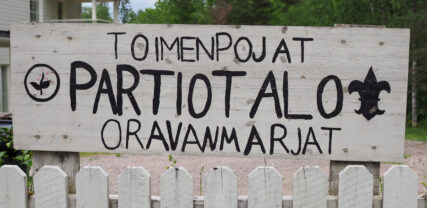 TOIMENPOJAT
PARTIOTALO
ORAVANMARJAT